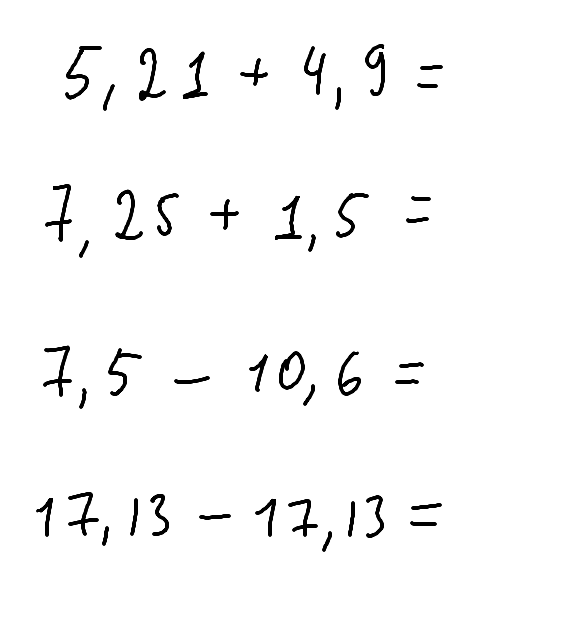 5,21 + 4,9 =
7,25 + 1,5 =
7,5 – 10,6 =
17,13 – 17,13 =